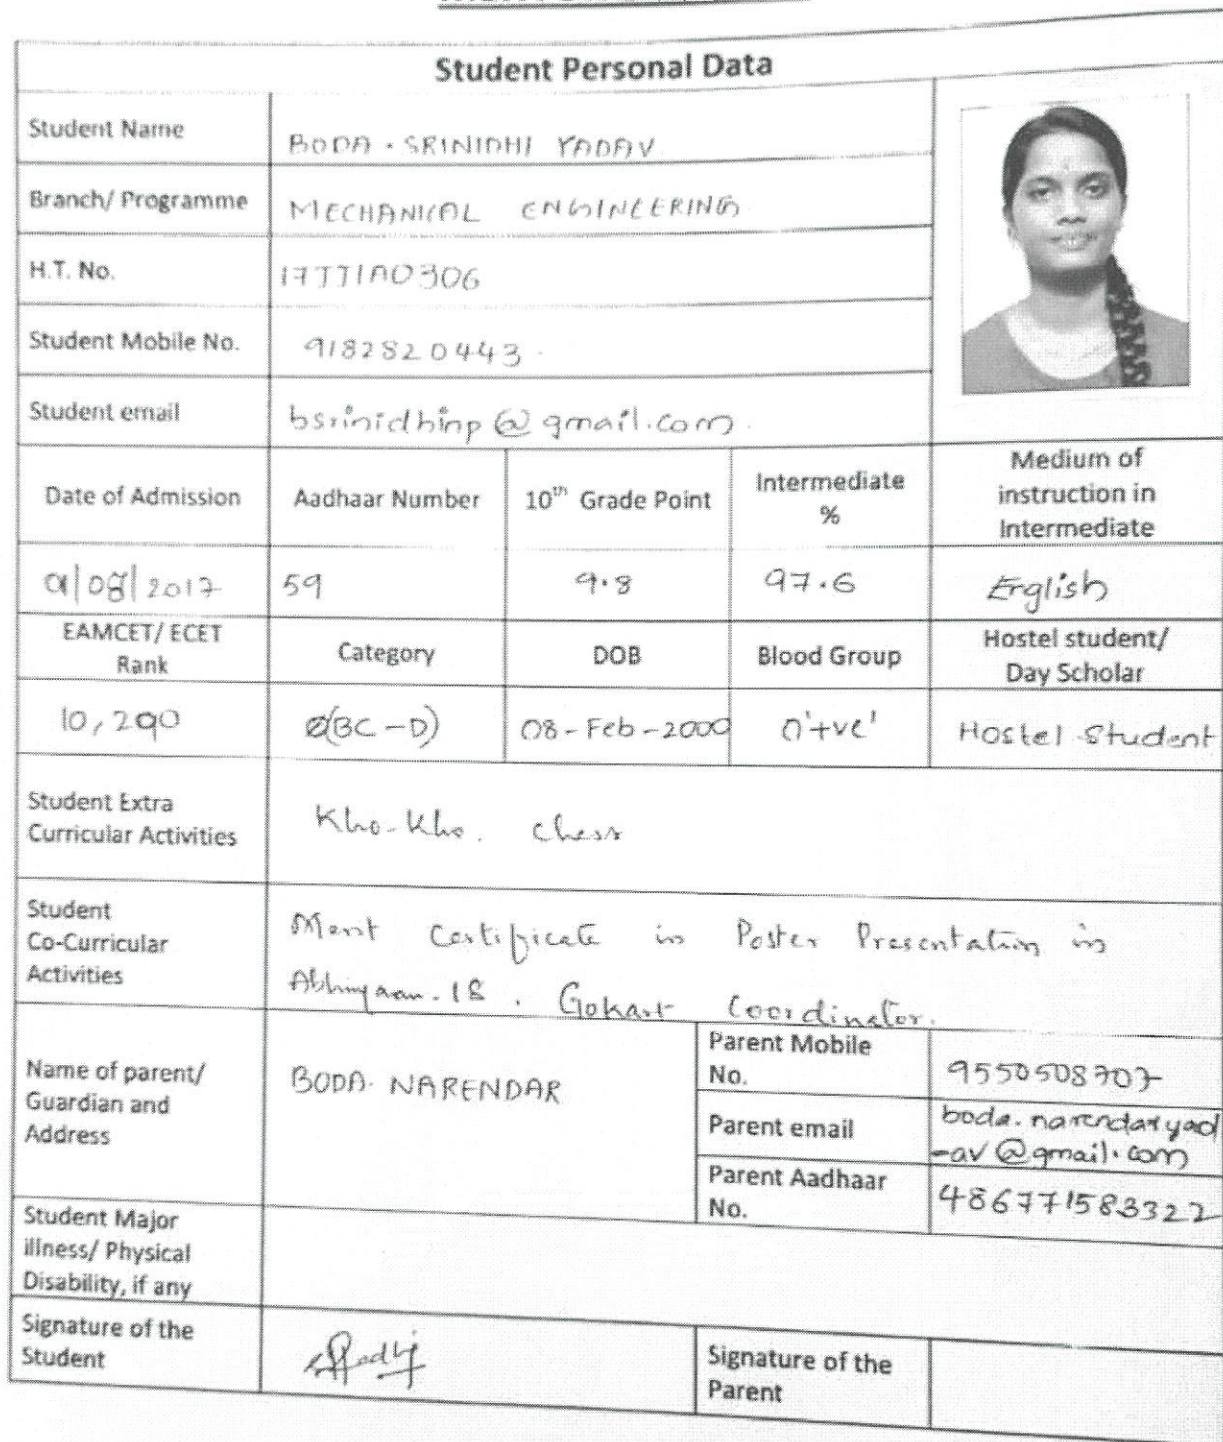 Student Personal Data
Student Name
BODA. SRINIDHI YADAV
Branch/ Programme
MECHANICAL ENGINEERING
H.T. No.
17TT1A0306
Student Mobile No.
9182820443.
Student email
bsrinidhinp@gmail.com.
Date of Admission
Aadhaar Number
10th Grade Point
Intermediate
%
Medium of
instruction in
Intermediate
9/08/2017
59
9.8
97.6
English
EAMCET/ ECET
Rank
Category
DOB
Blood Group
Hostel student/
Day Scholar
10,290
(BC-D)
08-Feb-2000
O'+ve'
Hostel Student
Student Extra
Curricular Activities
Kho-Kho. Chess
Student
Co-Curricular
Activities
Merit Certificate in Poster Presentation in
Abhiyaan-18. Gokart Coordinator.
Name of parent/
Guardian and
Address
BODA. NARENDAR
Parent Mobile
No.
9550508707
Parent email
boda.narendaryad
-av@gmail.com
Parent Aadhaar
No.
486771583322
Student Major
illness/ Physical
Disability, if any
Signature of the
Student
Signature of the
Parent